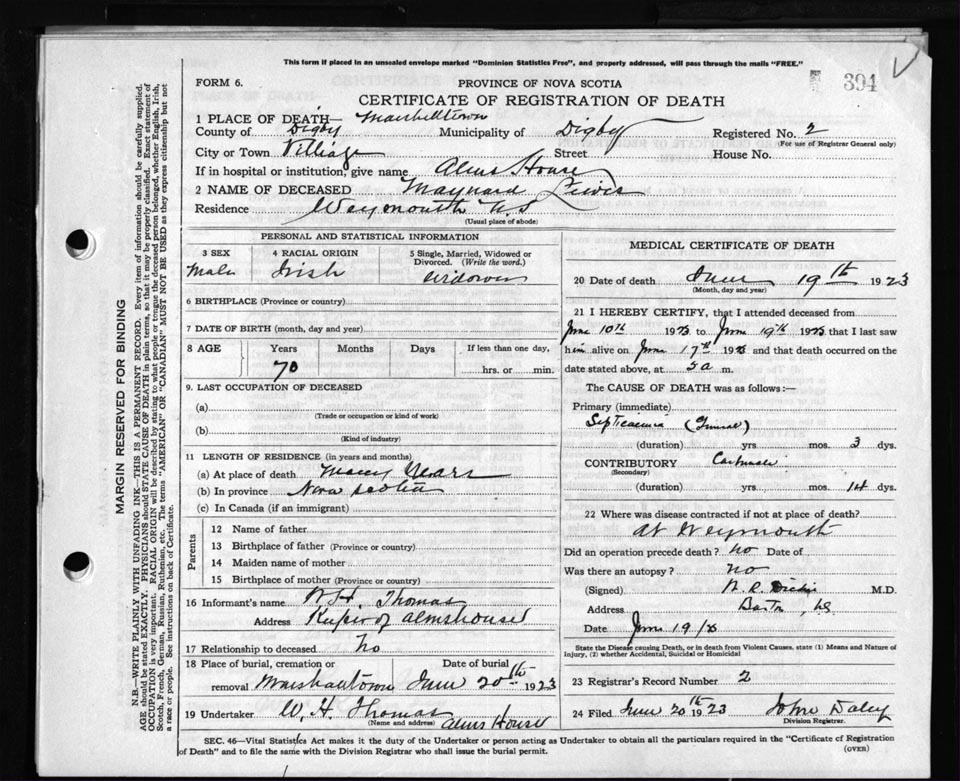 This form if placed in an unsealed envelope marked "Dominion Statistics Free", and properly addressed, will pass through the mails "FREE."
394 V
FORM 6. PROVINCE OF NOVA SCOTIA
CERTIFICATE OF REGISTRATION OF DEATH
1 PLACE OF DEATH— Marshelltown
County of Digby Municipality of Digby Registered No. 2
(For use of Registrar General only)
City or Town Village Street House No.
If in hospital or institution, give name Alms House
2 NAME OF DECEASED Maynard Lewis
Residence Weymouth N.S
(Usual place of abode)
PERSONAL AND STATISTICAL INFORMATION
3 SEX 4 RACIAL ORIGIN 5 Single, Married, Widowed or Divorced. (Write the word.)
Male Irish widower
6 BIRTHPLACE (Province or country)
7 DATE OF BIRTH (month, day and year)
8 AGE Years Months Days If less than one day,
70 hrs. or min.
9. LAST OCCUPATION OF DECEASED
(a)
(Trade or occupation or kind of work)
(b)
(Kind of industry)
11 LENGTH OF RESIDENCE (in years and months)
(a) At place of death Many Years
(b) In province Nova Scotia
(c) In Canada (if an immigrant)
Parents
12 Name of father
13 Birthplace of father (Province or country)
14 Maiden name of mother
15 Birthplace of mother (Province or country)
16 Informant's name W.H. Thomas
Address Keeper of almshouse
17 Relationship to deceased No
18 Place of burial, cremation or Date of burial
removal Marshalltown June 20th 1923
19 Undertaker W. H. Thomas Alms House
(Name and address)
MEDICAL CERTIFICATE OF DEATH
20 Date of death June 19th 1923
(Month, day and year)
21 I HEREBY CERTIFY, that I attended deceased from
June 10th 1923 to June 19th 1923 that I last saw
him alive on June 17th 1923 and that death occurred on the
date stated above, at 5a m.
The CAUSE OF DEATH was as follows:—
Primary (immediate)
Septicaemia
(duration) yrs. mos. 3 dys.
CONTRIBUTORY Carbuncle
(Secondary)
(duration) yrs. mos. 14 dys.
22 Where was disease contracted if not at place of death?
At Weymouth
Did an operation precede death? no Date of
Was there an autopsy? no
(Signed) M.D.
Address Barton, NS
Date June 19/23
State the Disease causing Death, or in death from Violent Causes, state (1) Means and Nature of Injury, (2) whether Accidental, Suicidal or Homicidal
23 Registrar's Record Number 2
24 Filed June 20th 1923 John Daley
Division Registrar.
SEC. 46—Vital Statistics Act makes it the duty of the Undertaker or person acting as Undertaker to obtain all the particulars required in the "Certificate of Registration
of Death" and to file the same with the Division Registrar who shall issue the burial permit. (OVER)
MARGIN RESERVED FOR BINDING
N.B.—WRITE PLAINLY WITH UNFADING INK—THIS IS A PERMANENT RECORD. Every item of information should be carefully supplied.
AGE should be stated EXACTLY. PHYSICIANS should STATE CAUSE OF DEATH in plain terms, so that it may be properly classified. Exact statement of
OCCUPATION is very important. RACIAL ORIGIN will be described by stating to what people or tongue the deceased person belonged, whether English, Irish,
Scotch, French, German, Russian, Ruthenian, etc. The terms "AMERICAN" OR "CANADIAN" MUST NOT BE USED as they express citizenship but not
a race or people. See instructions on back of Certificate.